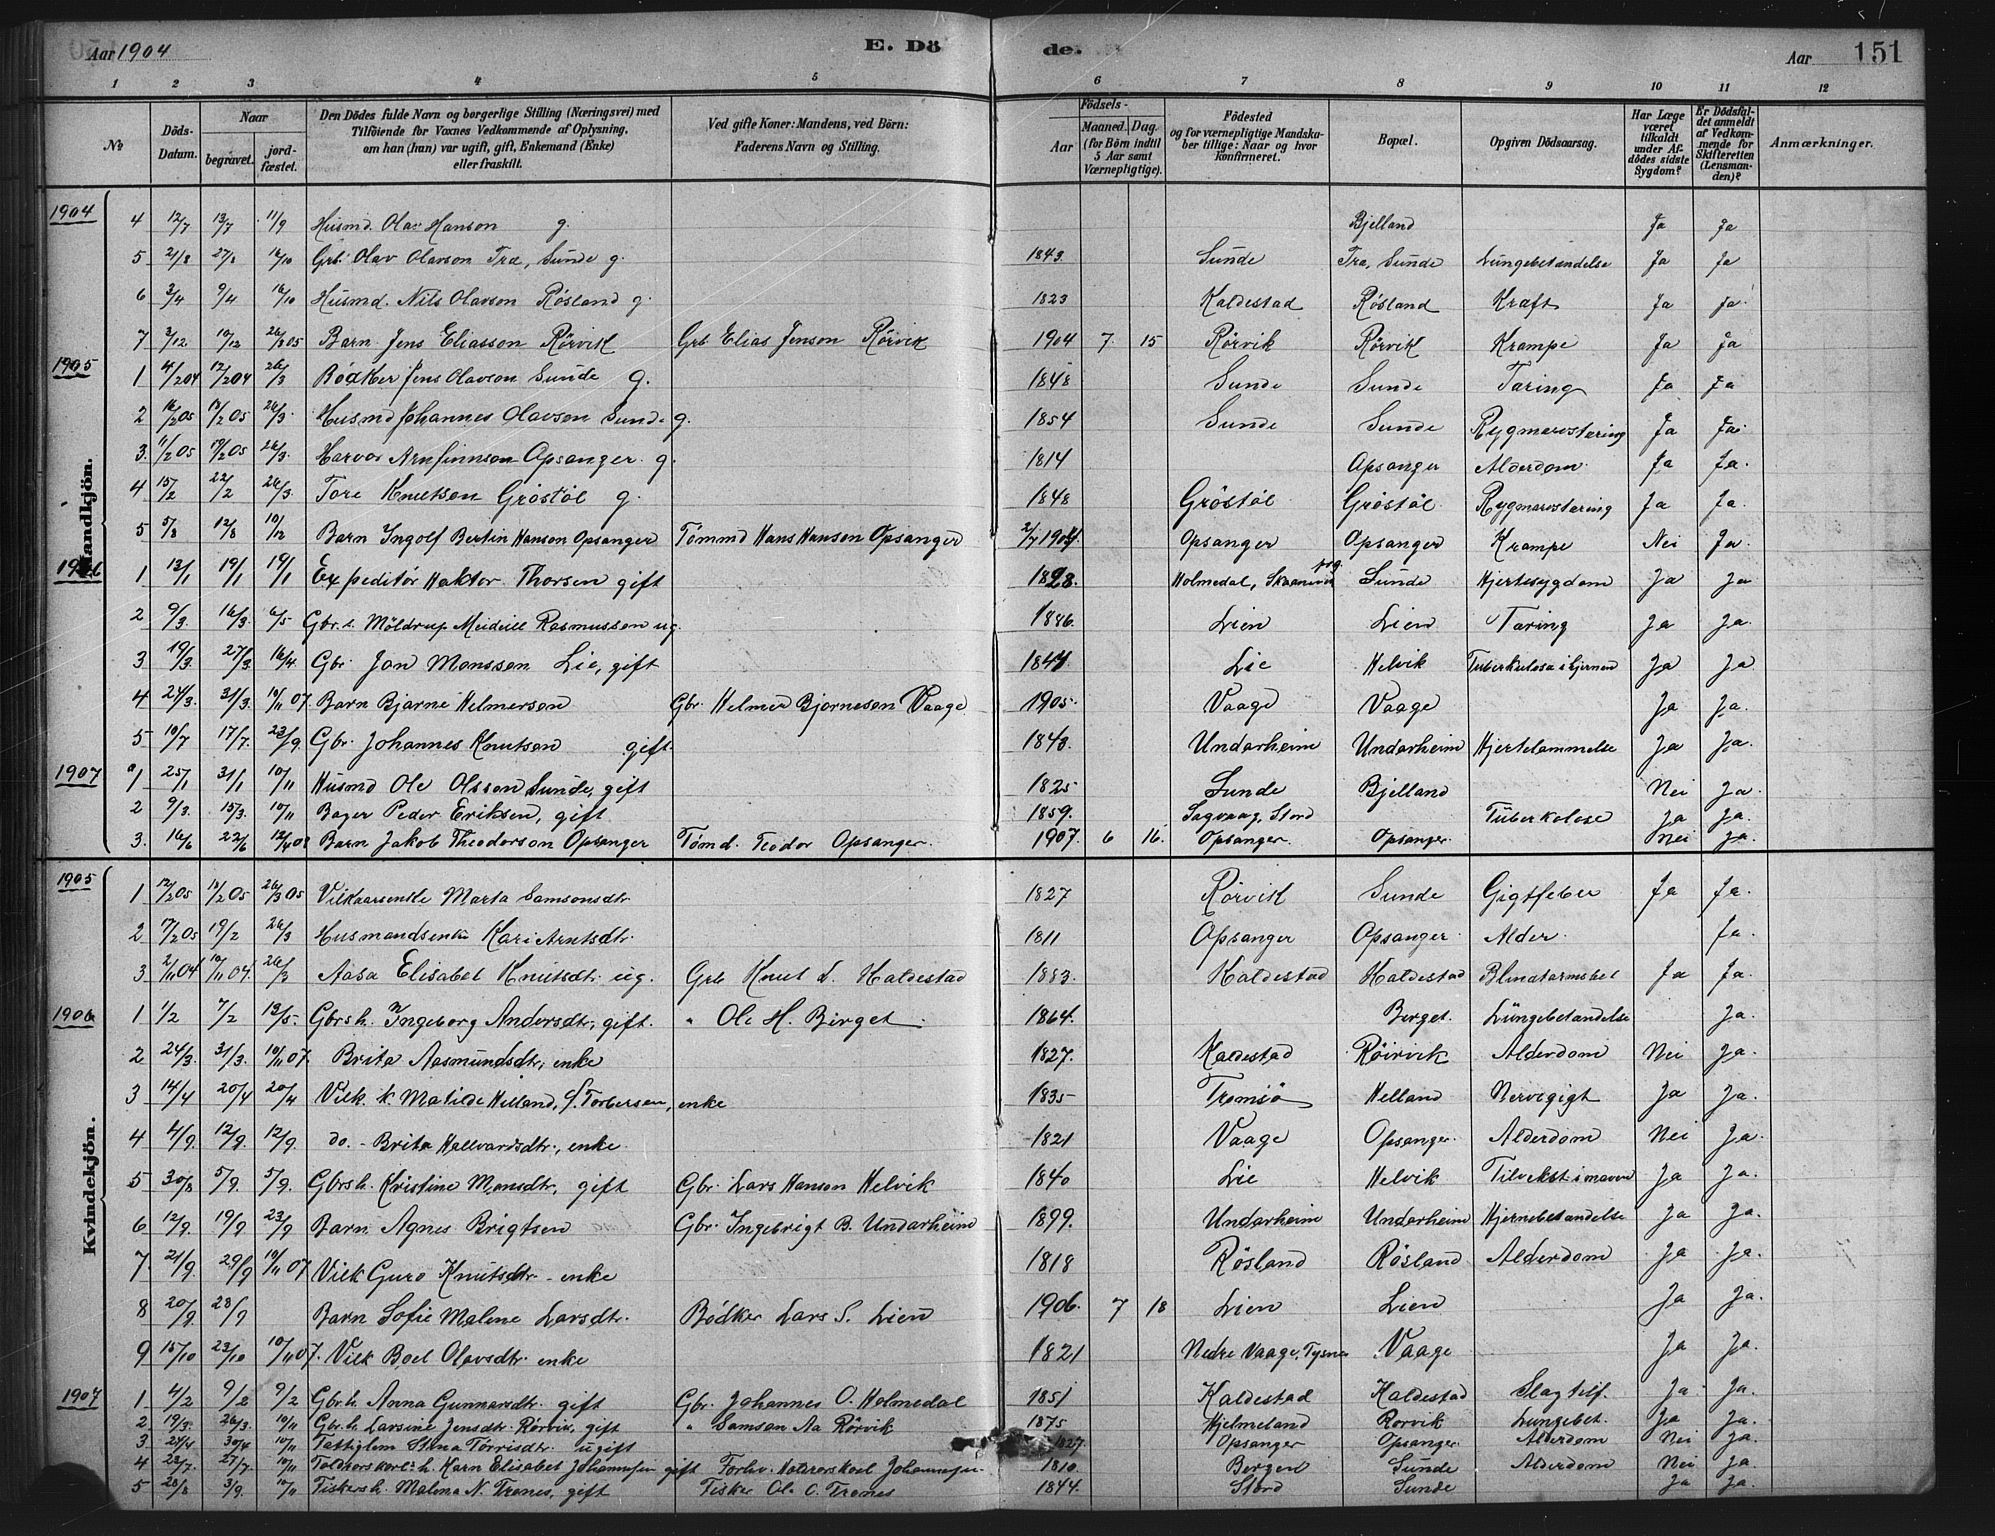 Aar 1904 E. Dö de. Aar 151
1 2 3 4 5 6 7 8 9 10 11 12
No Döds-Datum. Naar begravet. jordfæstet. Den Dödes fulde Navn og borgerlige Stilling (Næringsvei) med Tilföiende for Voxnes Vedkommende af Oplysning, om han (hun) var ugift, gift, Enkemand (Enke) eller fraskilt. Ved gifte Koner: Mandens, ved Börn: Faderens Navn og Stilling. Födsels- Aar Maaned. Dag. (for Börn indtil 5 Aar samt Værnepligtige). Födested og for værnepligtige Mandskaber tillige: Naar og hvor Konfirmeret. Bopæl. Opgiven Dödsaarsag. Har Læge været tilkaldt under Afdödes sidste Sygdom? Er Dödsfaldet anmeldt af Vedkommende for Skifteretten (Lensmanden)? Anmærkninger.
Mandkjön.
1904
4 12/7 13/7 11/9 Husmd. Olav Hanson g. Bjelland Ja Ja
5 21/8 27/8 16/10 Grb. Olav Olavson Træ, Sunde g. 1843 Sunde Træ, Sunde Lungebetændelse Ja Ja
6 3/4 9/4 16/10 Husmd. Nils Olavson Røsland g. 1823 Kaldestad Røsland Kræft Ja Ja
7 3/12 10/12 26/3 05 Barn Jens Eliasson Rørvik Grb Elias Jenson Rørvik 1904 7. 15 Rørvik Rørvik Krampe Ja Ja
1905
1 4/2 04 12/2 04 26/3 Bødker Jens Olavson Sunde g. 1848 Sunde Sunde Tæring Ja Ja
2 16/2 05 18/2 05 26/3. Husmd Johannes Olavson Sunde g. 1854 Sunde Sunde Rygmarvstæring Ja Ja.
3. 11/2 05 19/2 05 26/3. Harvor Arnfinnson Opsanger. g. 1814 Opsanger Alderdom. Ja Ja.
4 15/2 22/2 26/3. Tore Knutson Grøstøl g. 1848 Grøstøl Grøstøl Rygmarvstæring Ja Ja.
5 5/8 12/8 10/12 Barn Ingolf Bertin Hanson Opsanger Tømmd Hans Hanson Opsanger 2/7 1904. Opsanger Opsanger Krampe Nei Ja.
1906
1 13/1 19/1 19/1 Expeditør Haktor Thorsen gift 1828. Holmedal, Skaanevik prg. Sunde Hjertesygdom Ja Ja
2 9/3. 16/3. 6/5 Gbr. s. Möldrup Meidell Rasmussen ug. 1886. Lien Lien Tæring Ja Ja.
3 19/3. 27/3. 16/4. Gbr. Jon Monsson Lie, gift 1844. Lie Helvik Tuberkulose i hjernen Ja Ja
4 24/3. 31/3. 10/11 07. Barn Bjarne Helmerson Gbr. Helmer Bjørneson Vaage. 1905. Vaage Vaage Ja Ja.
5 10/7 17/7. 23/9. Gbr. Johannes Knutson gift. 1843. Undarheim Undarheim Hjertelammelse Ja Ja.
1907
1 25/1 31/1 10/11 Husmd Ole Olsson Sunde, gift 1825 Sunde Bjelland Nei Ja.
2 9/3. 15/3. 10/11 Bager Peder Eriksen, gift 1859. Sagvaag, Stord Tuberkulose Ja Ja.
3. 16/6 22/6 12/4 08 Barn Jakob Theodorson Opsanger Tømd. Teodor Opsanger. 1907. 6 16. Opsanger. Opsanger. Nei Ja.
Kvindekjön.
1905
1 12/2 05 18/2 05 26/3 05 Vilkaarsenke Marta Samsonsdtr. 1827 Rørvik Sunde Gigtfeber Ja Ja.
2 7/2 05 19/2 26/3 Husmandsenke Kari Arntsdtr. 1811 Opsanger Opsanger. Alder. Ja.
3 2/11 04 10/11 04. 26/3 Aasa Elisabet Knutsdtr. ug. Grb Knut L. Haldestad 1883. Haldestad Haldestad Blindtarmsbet Ja Ja.
1906
1 1/2 7/2 13/5. Gbrsh. Ingeborg Andersdtr, gift. " Ole H. Berget 1864. Berget. Lungebetændelse Ja.
2 24/3. 31/3. 10/11 07 Brita Aasmundsdtr, enke 1827. Kaldestad Røirvik Alderdom Nei Ja.
3 14/4 20/4 20/4 Vilk. k. Matilde Helland, S. Torbersen, enke 1835 Tromsø Helland Nervigigt Ja Ja.
4 4/9. 12/9. 12/9. do. - Brita Hallvardsdtr., enke. 1821 Vaage Opsanger. Alderdom Nei Ja.
5 30/8 5/9. 5/9. Gbrsh. Kristine Monsdtr, gift Gbr. Lars Hanson Helvik 1840 Lie Helvik Tilvekst i maven Ja Ja.
6 12/9. 19/9 23/9 Barn Agnes Brigtsen Gbr. Ingebrigt B. Undarheim 1899. Undarheim Undarheim Hjernebetændelse Ja Ja.
7 21/9. 29/9 10/11 07 Vilk Guro Knutsdtr - enke 1818 Røsland Røsland Alderdom Ja Ja.
8 20/9. 28/9 Barn Sofie Malene Larsdtr. Bødker Lars S. Lien 1906. 7 18 Lien Lien Ja Ja.
9 15/10 23/10 10/11 07. Vilk Boel Olavsdtr. enke 1821 Nedre Vaage, Tysnes Vaage Ja Ja.
1907
1 4/2 9/2 9/2 Gbr.h. Anna Gunnarsdtr. gift Gbr. Johannes O. Holmedal 1851 Kaldestad Kaldestad Slagtilf. Ja Ja.
2 19/3. 26/3. 10/11 Gbr.h. Larsine Jensdtr. Rørvik, gift " Samson Aa Rörvik 1875 Hjelmeland Rorvik Lungebet. Ja Ja.
3 24/4 30/4 10/11 Fattiglem Stina Tørrisdtr. ugift 1827. Opsanger Opsanger. Alderdom Nei Ja.
4 22/7. 27/7. 10/11 Karn Elisabet Johannesen gift Forhv. Johannesen 1810. Bergen Sunde Alderdom Nei Ja.
5 28/8 3/9. 10/11 Fiskersh. Malena N. Trones, gift Fisker Ole O. Trones 1844. Stord Sunde Ja Ja.